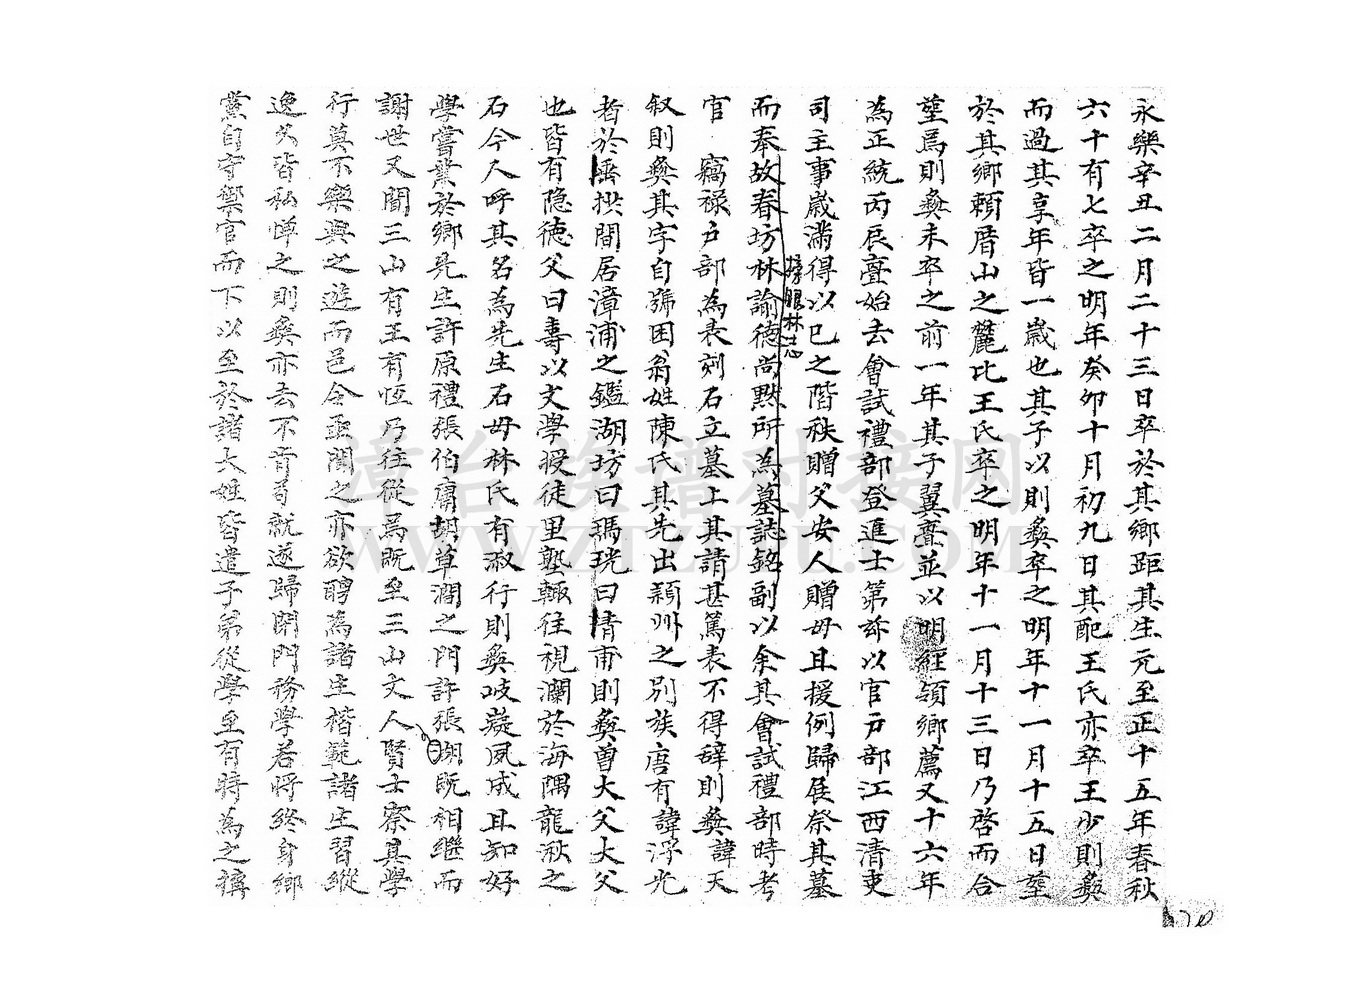 永樂辛丑二月二十三日卒於其鄉距其生元至正十五年春秋
六十有七卒之明年癸卯十月初九日其配王氏亦卒王少則彝
而過其享年皆一歲也其子以則彝卒之明年十一月十五日塟
於其鄉賴厝山之麓比王氏卒之明年十一月十三日乃啓而合
塟焉則彝未卒之前一年其子翼亹並以明經領鄉薦又十六年
為正統丙辰亹始去會試禮部登進士第茲以官戶部江西清吏
司主事歲滿得以已之階秩贈父安人贈母且援例歸展祭其墓
榜眼林志
而奉故春坊林諭德尚默所為墓誌銘副以余其會試禮部時考
官 竊祿戶部為表刻石立墓上其請甚篤表不得辭則彝諱天
叙則彝其字自號困翁姓陳氏其先出潁州之別族唐有諱浮光
者於垂拱間居漳浦之鑑湖坊曰瑪珖曰清甫則彝曾大父大父
也皆有隐德父曰壽以文學授徒里塾輙往視瀾於海隅龍湫之
石今人呼其名為先生石母林氏有淑行則彝岐凝夙成且知好
學嘗業於鄉先生許原禮張伯庸胡草澗之門許張胡既相繼而
謝世又聞三山有王有恆乃往從焉既至三山文人賢士察其學
行莫不樂與之遊而邑令亟聞之亦欲聘為諸生楷範諸生習縱
逸父皆私憚之則彝亦去不肯苟就遂歸閉門務學若將終身鄉
黨自守禦官而下以至於諸大姓皆遣子弟從學至有特為之構
漳台族谱对接网
WWW.ZTZUPU.COM